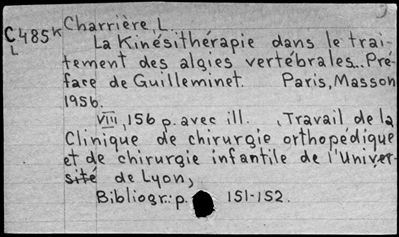 Charrière, L
C485k
L
La Kinésithérapie dans le trai-
tement des algies vertébrales... Pré-
face de Guilleminet. Paris, Masson
1956.
VIII, 156 p. avec ill. , Travail de la
Clinique de chirurgie orthopédique
et de chirurgie infantile de l'Univer-
sité de Lyon,
Bibliogr.: p. 151-152.